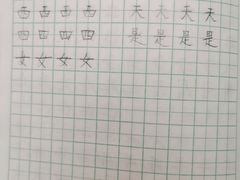 西 西 西 西 天 天 天 天
四 四 四 四 是 是 是 是
女 女 女 女